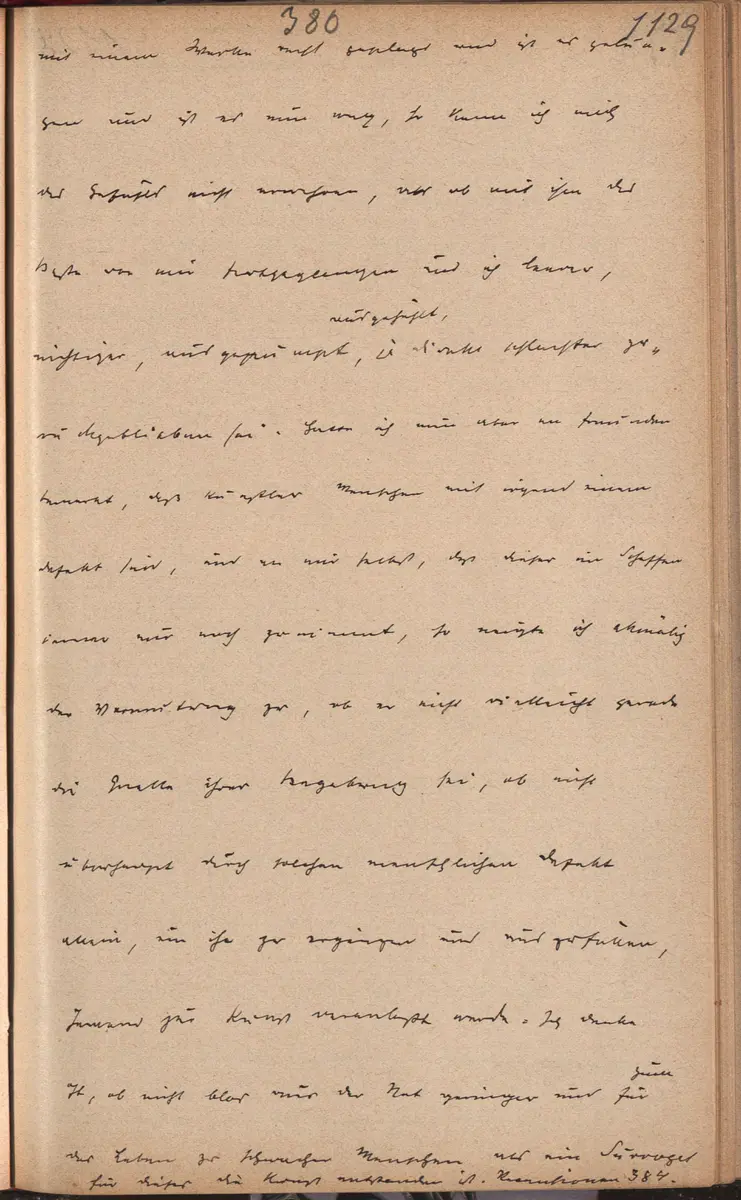 380 1129
mit einem Werke recht geplagt und ist es gelun-
gen und ist es nun weg, so kann ich mich
des Gefühls nicht erwehren, als ob mit ihm das
Beste von mir fortgegangen und ich leerer,
ausgehöhlt,
nichtiger, ausgepumpt, ja direkt schlechter zu-
rückgeblieben sei. Habe ich nun aber an Freunden
bemerkt, daß Künstler Menschen mit irgend einem
Defekt sind, und an mir selbst, daß dieser im Schaffen
immer nur noch zunimmt, so neigte ich allmälig
der Vermutung zu, ob er nicht vielleicht gerade
die Quelle ihrer Begabung sei, ob nicht
überhaupt durch solchen menschlichen Defekt
allein, um ihn zu ergänzen und auszufüllen,
Jemand zur Kunst veranlaßt werde. Ich denke
zum
oft, ob nicht blos aus der Not geringer und für
das Leben zu schwacher Menschen als ein Surrogat
für dieses die Kunst entstanden ist. 384.